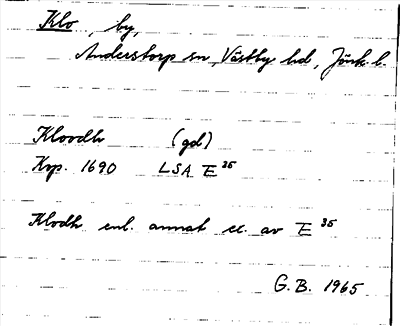 Klo, by,
Anderstorp sn, Västbo hd, Jönk. l.
Kloodh (gd)
Kop. 1690 LSA E 35
Klodh enl. annat ex. av E 35
G.B. 1965